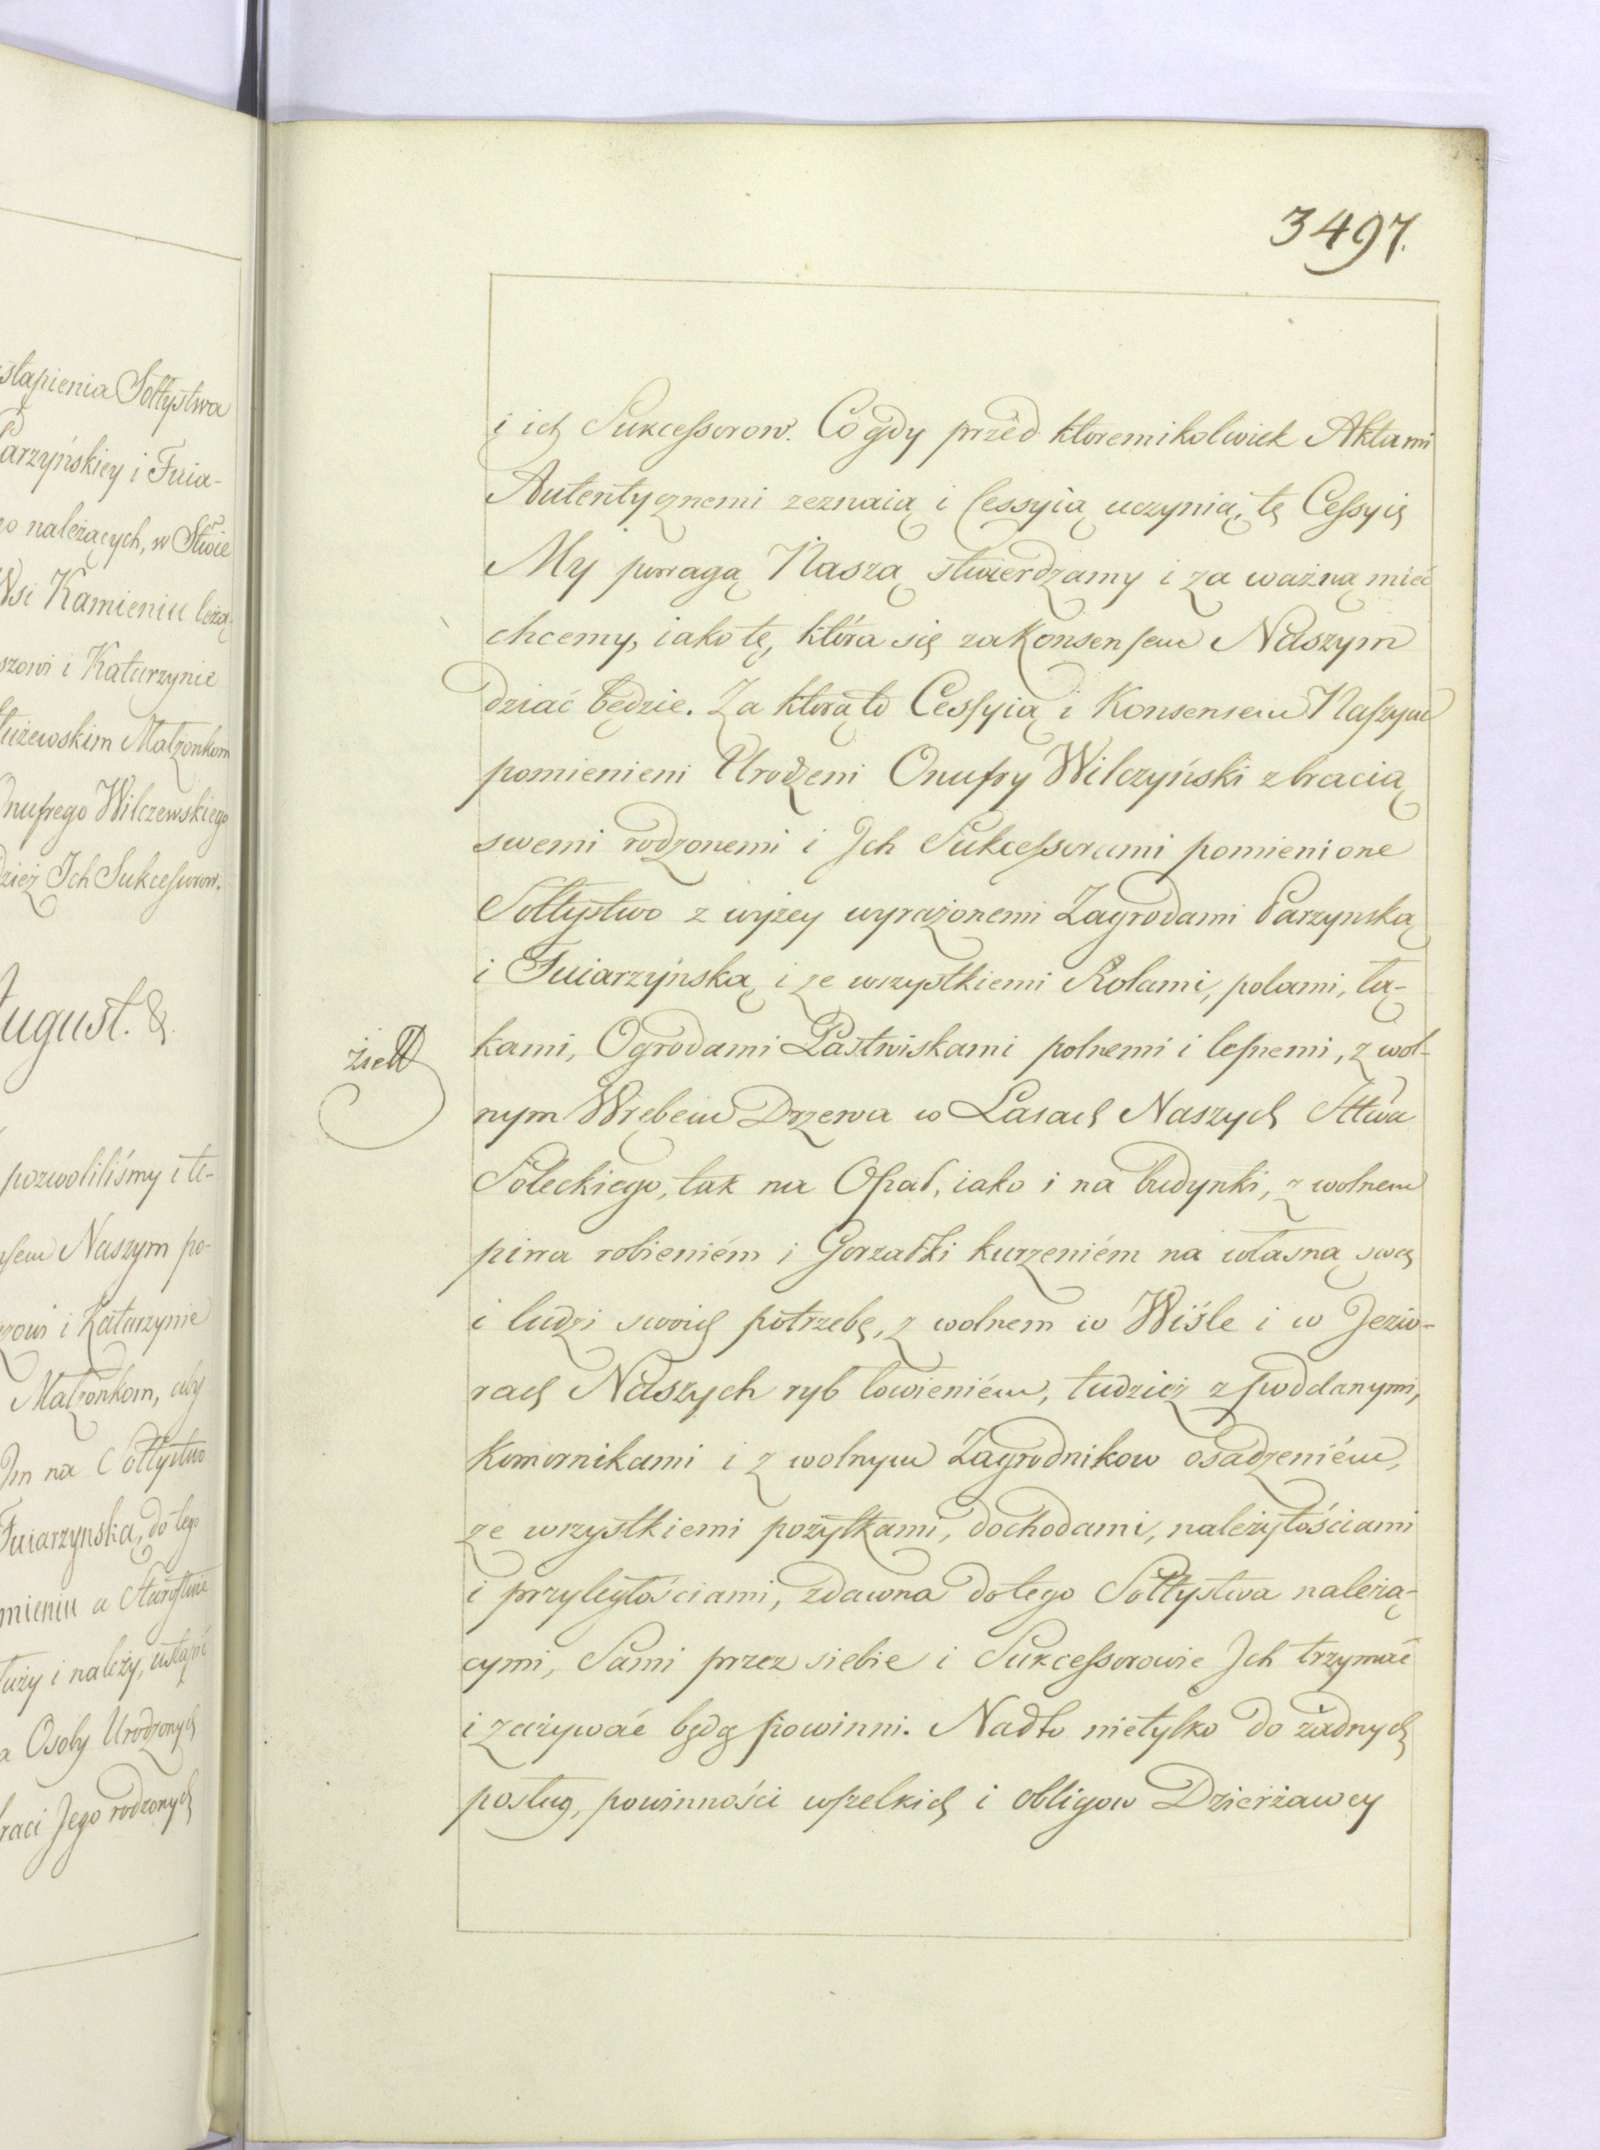 stąpienia Sołtystwa
Parzyńskiey i Fuia-
go należących, w Stwie
Wsi Kamieniu leżą-
szowi i Katarzynie
Małżonkom
Onufrego Wilczewskiego
dzież Ich Sukcessorow.
August. &.
pozwoliliśmy i te-
nsem Naszym po-
szowi i Katarzynie
Małżonkom, aby
Im na Sołtystwo
Fuiarzynska, do tego
mieniu a Starostwie
łuży i należy, ustąpić
a Osoby Urodzonych
braci Jego rodzonych
3497.
i ich Sukcessorow. Co gdy przed ktoremikolwiek Aktami
Autentycznemi zeznaią i Cessyią uczynią, tę Cessyię
My powagą Naszą stwierdzamy i za ważną mieć
chcemy, iako tę, która się za Konsensem Naszym
dziać będzie. Za ktorą to Cessyią i Konsensem Naszym
pomienieni Urodzeni Onufry Wilczyński z bracią
swemi rodzonemi i Ich Sukcessorami pomienione
Sołtystwo z wyżey wyrażonemi Zagrodami Parzynską
i Fuiarzyńską i ze wszystkiemi Rolami, polami, łą-
kami, Ogrodami Pastwiskami polnemi i lesnemi, z wol-
nym Wrębem Drzewa w Lasach Naszych Sttwa
Soleckiego, tak na Opał, iako i na budynki, z wolnem
piwa robieniém i Gorzałki kurzeniém na własną swą
i ludzi swoich potrzebę, z wolnem w Wiśle i w Jezio-
rach Naszych ryb łowieniém, tudzież z poddanymi,
Komornikami i z wolnym Zagrodnikow osadzeniém,
ze wszystkiemi pożytkami, dochodami, należytościami
i przyległościami, zdawna do tego Sołtystwa należą-
cymi, Sami przez siebie i Sukcessorowie Ich trzymać
i zażywać będą powinni. Nadto nietylko do żadnych
posług, powinności wszelkich i obligow Dzierżawcy